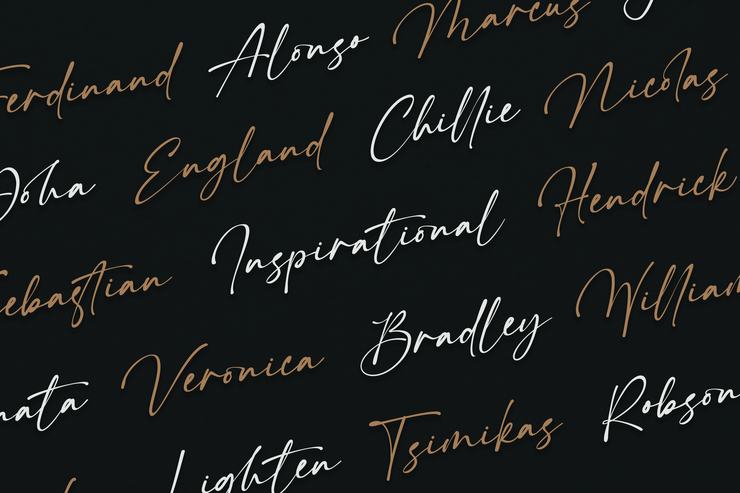 Ferdinand Alonso Marcus
England Chillie Nicolas
Sebastian Inspirational Hendrick
Veronica Bradley William
Lighten Tsimikas Robson